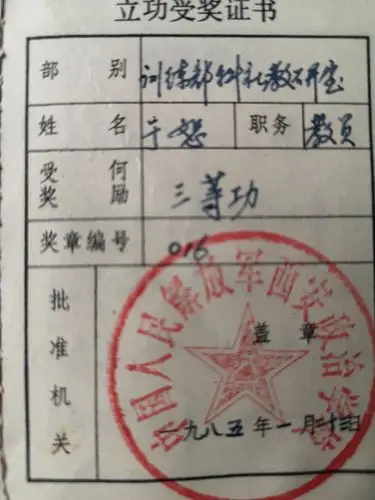 立功受奖证书
部别 训练部科社教研室
姓名 于恕 职务 教员
受何奖励 三等功
奖章编号 016
批准机关
中国人民解放军西安政治学院
盖章
一九八五年一月十三日